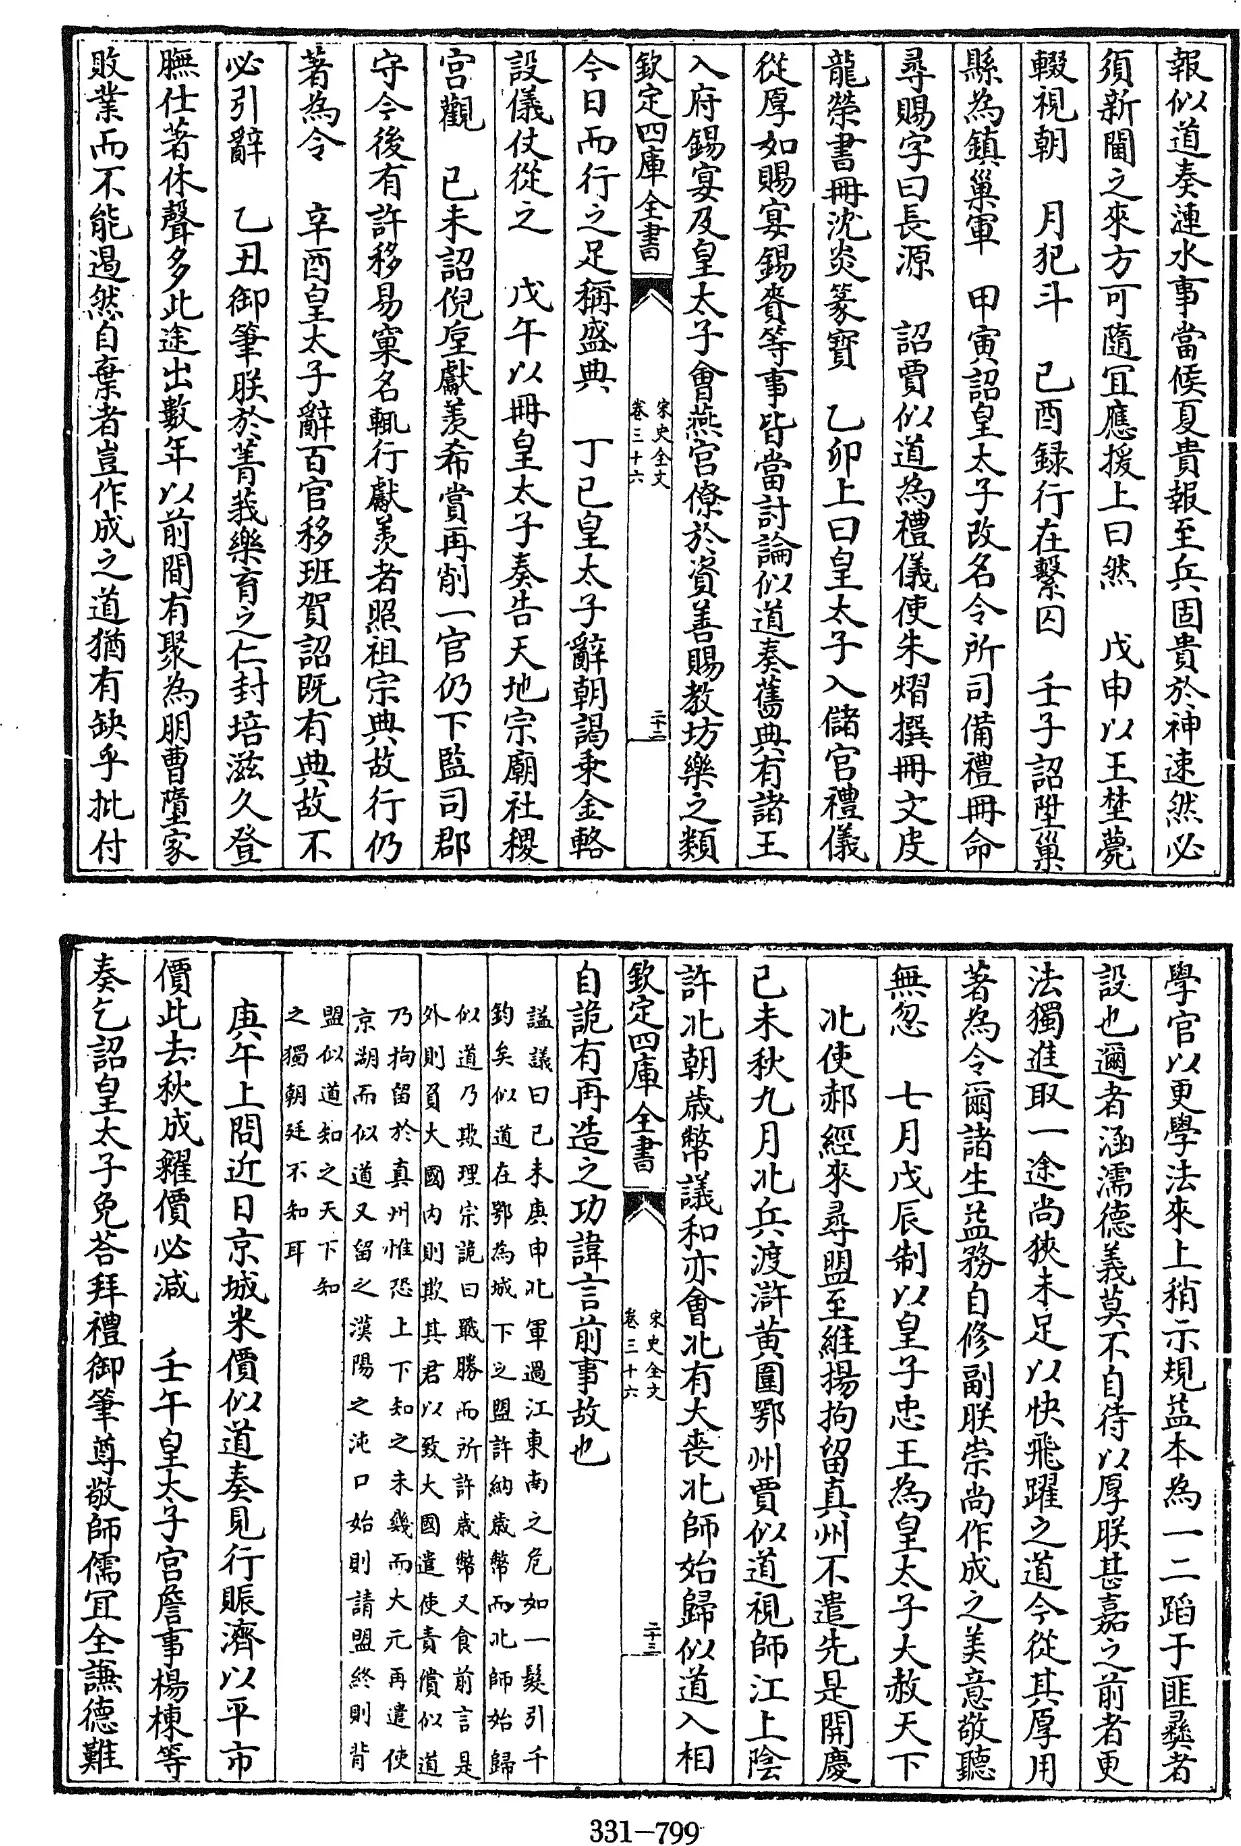 報似道奏漣水事當候夏貴報至兵固貴於神速然必
須新閫之來方可隨宜應援上曰然　戊申以王埜薨
輟視朝　月犯斗　己酉録行在繫囚　壬子詔陞巢
縣為鎮巢軍　甲寅詔皇太子改名令所司備禮冊命
尋賜字曰長源　詔賈似道為禮儀使朱熠撰冊文皮
龍榮書冊沈炎篆寶　乙卯上曰皇太子入儲宫禮儀
從厚如賜宴錫賚等事皆當討論似道奏舊典有諸王
入府錫宴及皇太子會燕宫僚於資善賜教坊樂之類
欽定四庫全書　宋史全文卷三十六　二十二
今日而行之足稱盛典　丁巳皇太子辭朝謁乘金輅
設儀仗從之　戊午以冊皇太子奏告天地宗廟社稷
宫觀　己未詔倪垕獻羡希賞再削一官仍下監司郡
守今後有許移易窠名輒行獻羡者照祖宗典故行仍
著為令　辛酉皇太子辭百官移班賀詔既有典故不
必引辭　乙丑御筆朕於菁莪樂育之仁封培滋久登
膴仕著休聲多此途出數年以前間有聚為朋曹墮家
敗業而不能遏然自棄者豈作成之道猶有缺乎批付
學官以更學法來上稍示規益本為一二蹈于匪彝者
設也邇者涵濡德義莫不自待以厚朕甚嘉之前者更
法獨進取一途尚狹未足以快飛躍之道今從其厚用
著為令爾諸生益務自修副朕崇尚作成之美意敬聽
無忽　七月戊辰制以皇子忠王為皇太子大赦天下
北使郝經來尋盟至維揚拘留真州不遣先是開慶
己未秋九月北兵渡滸黄圍鄂州賈似道視師江上陰
許北朝歲幣議和亦會北有大喪北師始歸似道入相
欽定四庫全書　宋史全文卷三十六　二十三
自詭有再造之功諱言前事故也
謚議曰己未庚申北軍過江東南之危如一髮引千
鈞矣似道在鄂為城下之盟許納歲幣而北師始歸
似道乃欺理宗詭曰戰勝而所許歲幣又食前言是
外則負大國内則欺其君以致大國遣使責償似道
乃拘留於真州惟恐上下知之未幾而大元再遣使
京湖而似道又留之漢陽之沌口始則請盟終則背
盟似道知之天下知
之獨朝廷不知耳
庚午上問近日京城米價似道奏見行賑濟以平市
價此去秋成糴價必減　壬午皇太子宫詹事楊棟等
奏乞詔皇太子免荅拜禮御筆尊敬師儒宜全謙德難
331-799